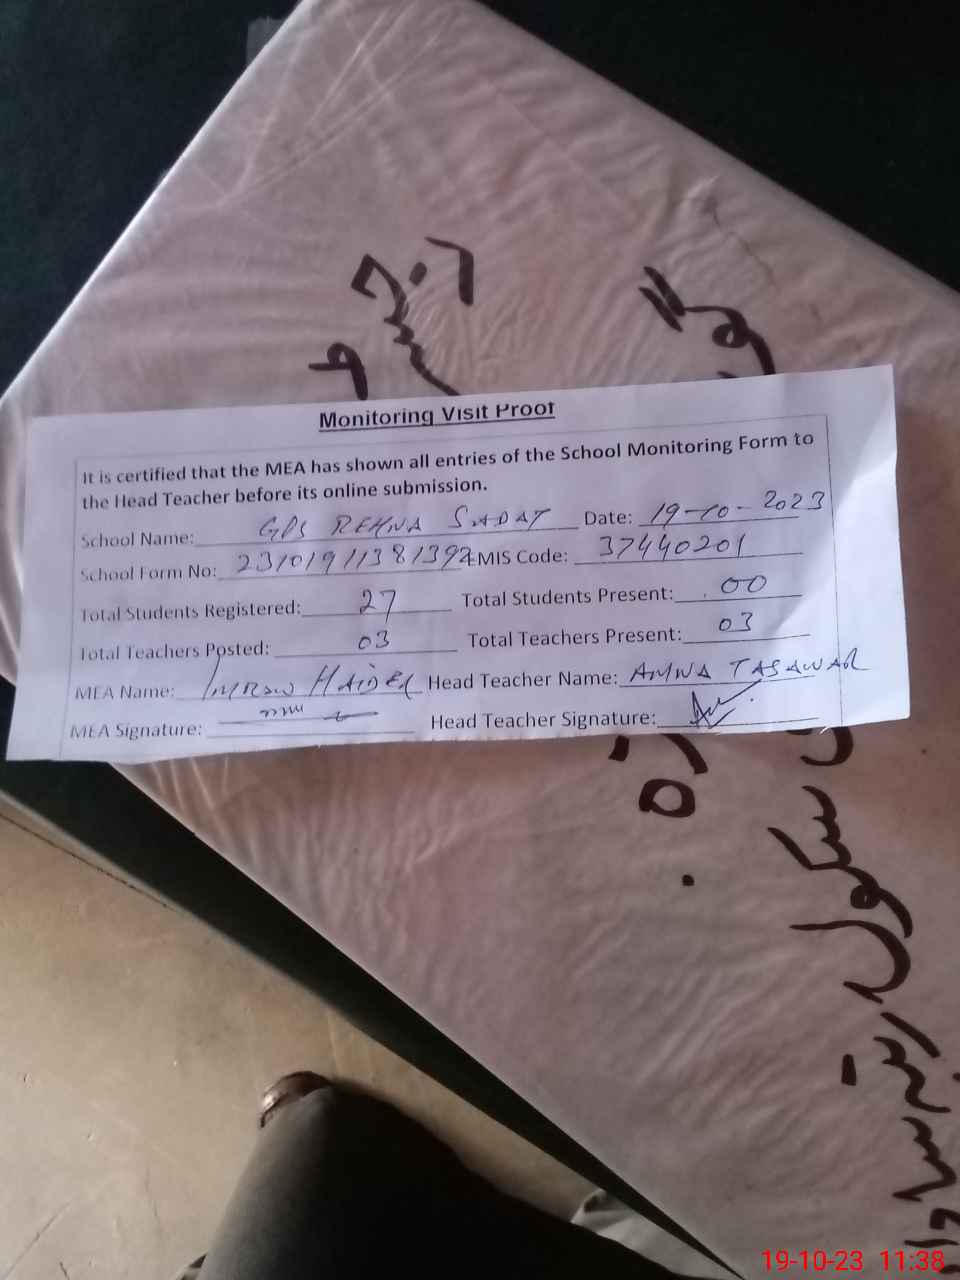 Monitoring Visit Proof
It is certified that the MEA has shown all entries of the School Monitoring Form to
the Head Teacher before its online submission.
School Name: GPS REHNA SADAT Date: 19-10-2023
School Form No: 23101911381392 EMIS Code: 37440201
Total Students Registered: 27 Total Students Present: 00
Total Teachers Posted: 03 Total Teachers Present: 03
MEA Name: IMRAN HAIDER Head Teacher Name: AMNA TASAWAR
MEA Signature: Head Teacher Signature:
سکول رتہ سادات
19-10-23 11:38